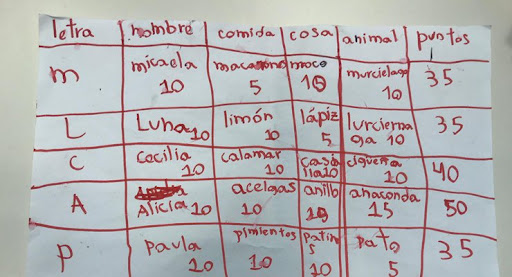 letra nombre comida cosa animal puntos
m micaela 10 macarrono 5 moco 10 murcielago 10 35
L Luna 10 limón 10 lápiz 5 lurcierna
ga 10 35
C Cecilia 10 calamar 10 10 cigueña 10 40
A Alicia 10 acelgas 10 anillo 10 anaconda 15 50
P Paula 10 pimientos 10 patin
s 10 pato 5 35